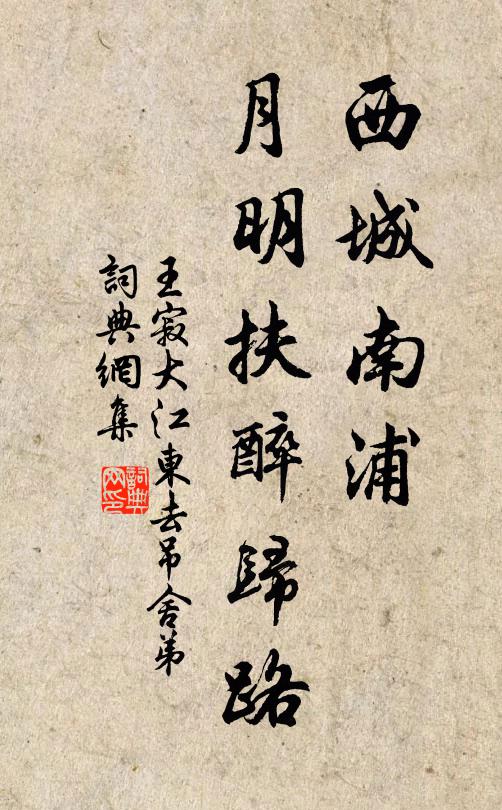 西城南浦
月明扶醉歸路
王寂大江東去吊舍弟
詞典網集
詞典
网印